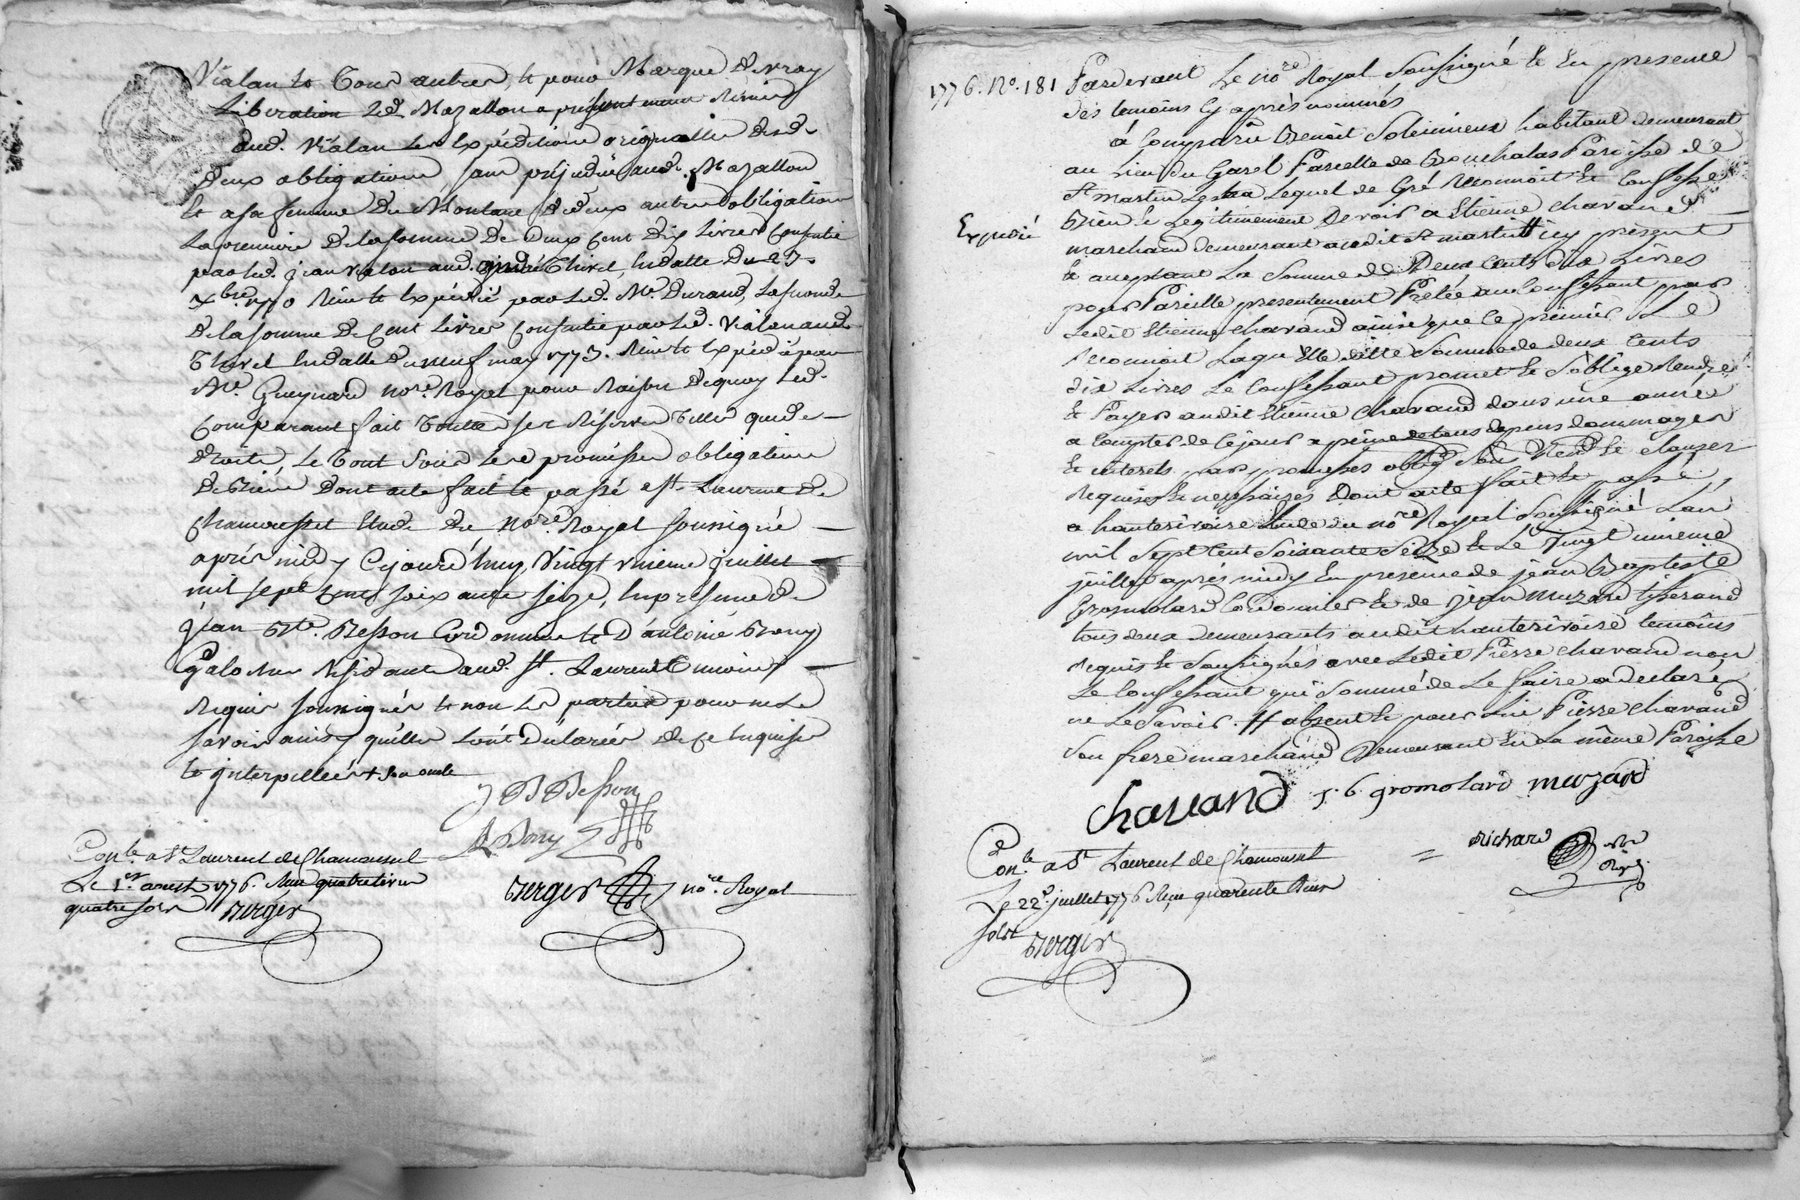 Vialan et tous autres, et pour Marque de vray
Liberation led. Mazallon a présentement Rémis
aud. Vialan les Expéditions originalles desd.
deux obligations, sans préjudice aud. Mazallon
et a sa femme du Montant de deux autres obligations
La premiere de la somme de deux cent dix Livres Consentie
par led. jean vialon aud. Thivel, En datte du 27
xbre 1770 Reüe et Expédié par led. Me. Durand, La seconde
de la somme de Cent Livres Consentie par led. Vialan aud.
Thivel En datte du neuf may 1773. Reüe et Expédié par
Me. Gueynard nore. Royal pour Raison de quoy led.
Comparant fait Toutes ses Réserves Telles que de
droits, Le Tout Sous les promesses obligations
de Biens dont acte fait et passé a St. Laurent de
Chamousset Etude du Nore. Royal soussigné
aprés midy Cejourd'huy Vingt unieme juillet
mil sept Cent soixante seize, En présence de
jean Bte. Besson Cordonnier et d'antoine Brony
Galocher Résidants aud. St. Laurent Temoins
Requis soussignés et non les parties pour ne le
savoir ainsy qu'elles l'ont déclarées de ce Enquises
et jnterpellées
J B Besson
A Brony
Conle. a St Laurent de Chamousset
Le 1er. aoust 1776. Reçu quatre livres
quatre sols Berger
Berger nore. Royal
1776. No. 181 Pardevant Le nore Royal Soussigné et En presence
des temoins cy aprés nommés
a Comparu Benoit Soleimieux habitant demeurant
au Lieu du Garel Parcelle de Paroisse de
St martin Lequel de Gré Reconnoit et Confesse
Expedié
Bien et Legitimement Devoir a Etienne Chavand
marchand demeurant audit St martin # icy présent
et acceptant La Somme de Deux Cents dix Livres
pour Pareille presentement Prêtée au Confessant par
Ledit Etienne Chavand ainsi que Ce premier Le
Reconnoit Laquelle ditte Somme de deux Cents
dix Livres Le Confessant promet et S'oblige Rendre
et Payer audit Etienne Chavand dans une année
a Compter de Cejour a peine de tous depens dommages
et interets par promesses oblig. Rend. et clauses
Requises et necessaires Dont acte fait et passé,
a hauterivoire Etude du nore Royal Soussigné L'an
mil Sept Cent Soixante Seize et Le Vingt unieme
juillet aprés midy En presence de jean Baptiste
Gromolard Cordonnier et de Jean Muzard tisserand
tous deux demeurants audit hauterivoire temoins
Requis et Soussignés avec Ledit Pierre Chavand non
Le Confessant qui Sommé de Le faire a declaré
ne Le Savoir. # absent et pour Lui Pierre Chavand
Son frere marchand Demeurant En La même Paroisse
Chavand J. b. gromolard muzard
Richard
Conle. a St Laurent de Chamousset
Le 22e. juillet 1776 Reçu quarente Deux
sols Berger